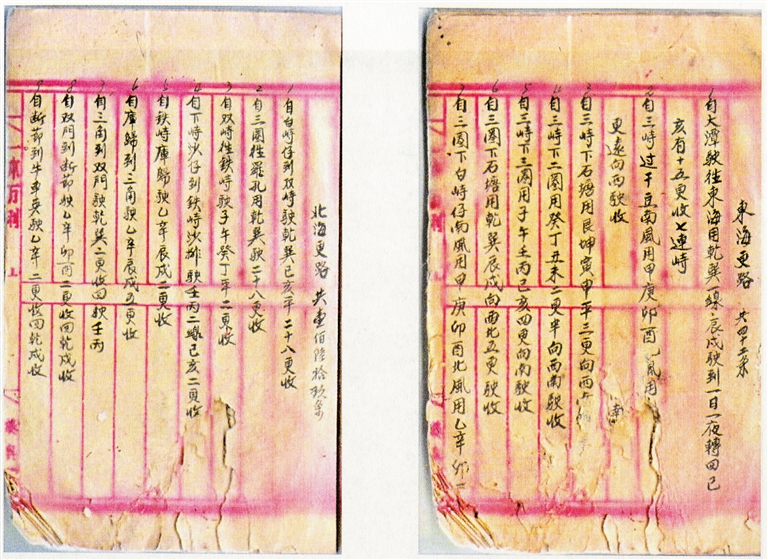 東海更路 共四十二条
自大潭駛往東海用乾巽一線辰戌駛到一日一夜轉回已
亥有十五更收七連峙
自三峙过干豆南風用甲庚卯酉 風用
更遠向西駛收
自三峙下石塘用艮坤寅甲平三更向西
自三峙下二圈用癸丁丑未二更半向西南駛收
自三峙下三圈用子午壬丙己亥四更向南駛收
自三圈下石塘用乾巽辰戌向西北五更駛收
自三圈下白峙仔南風用甲庚卯酉北風用乙辛卯
北海更路 共壹佰陸拾玖条
自白峙仔到双峙駛乾巽己亥平二十八更收
自三圈往羅孔用乾巽駛二十八更收
自双峙往鉄峙駛子午癸丁平二更收
自下峙沙仔到鉄峙沙排駛壬丙二線己亥二更收
自鉄峙庫歸駛乙辛辰戌二更收
自庫歸到三角駛乙辛辰戌五更收
自三角到双門駛乾巽二更收回駛壬丙
自双門到断節駛乙辛卯酉二更收回乾戌收
自断節到牛車英駛乙辛二更收回乾戌收
一本万利 上